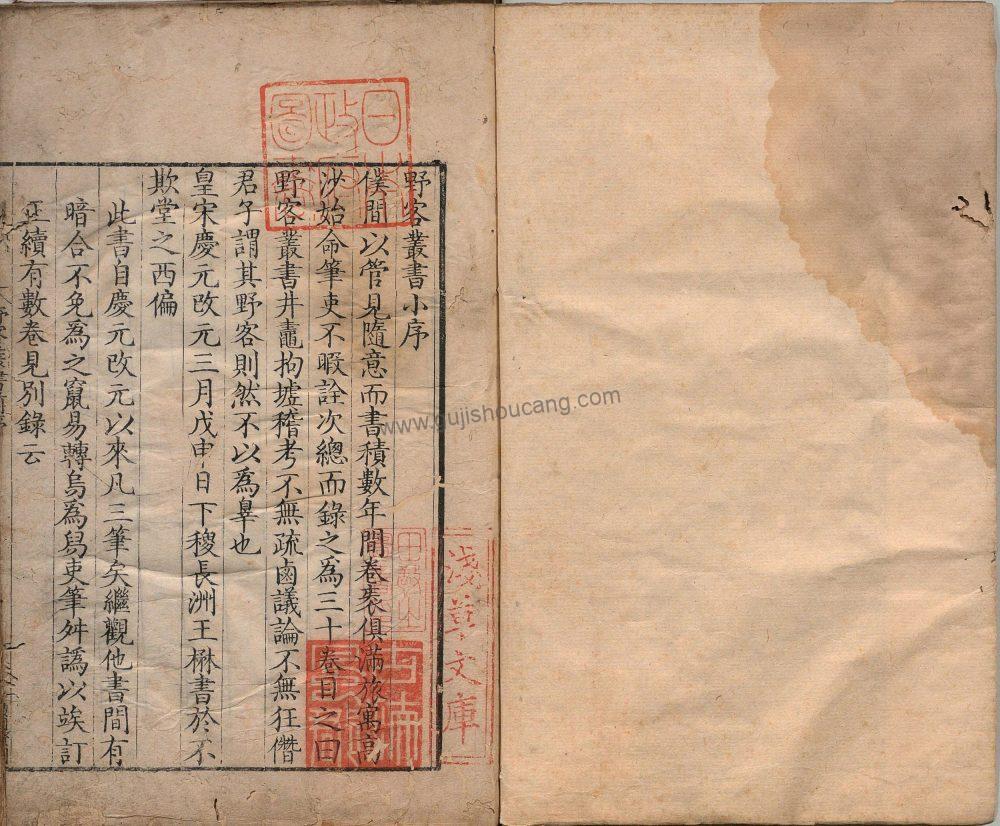 野客叢書小序
僕間以管見隨意而書積數年間卷袠俱滿旅寓高
沙始命筆吏不暇詮次總而錄之為三十卷目之曰
野客叢書井鼃拘墟稽考不無疏鹵議論不無狂僭
君子謂其野客則然不以為辠也
皇宋慶元改元三月戊申日下稷長洲王楙書於不
欺堂之西偏
此書自慶元改元以來凡三筆矣繼觀他書間有
暗合不免為之竄易轉烏為舄吏筆舛譌以竢訂
正續有數卷見別錄云
淺草文庫
日本政府圖書
www.gujishoucang.com